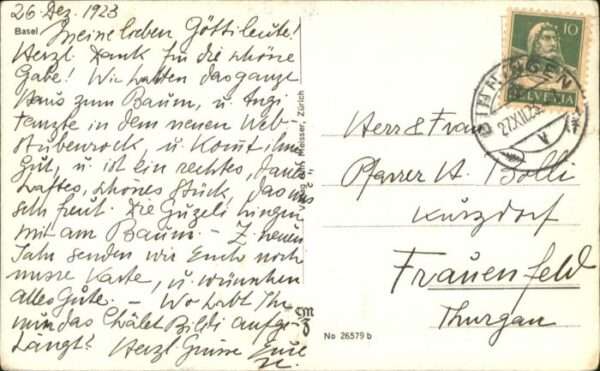 26. Dez. 1923
Basel
Meine lieben Göttileute!
Herzl. Dank für die schöne
Gabe! Wir hatten das ganze
Haus zum Baum, u.
tanzte in dem neuen Web-
stubenrock, u. Komt ihm
Gut, u. ist ein rechtes,
haftes, schönes Stück, das uns
sehr freut. Die Guzeli hingen
mit am Baum. - Z. neuen
Jahr senden wir Euch noch
unsre Karte, u. wünschen
alles Gute. - Wo habt Ihr
nun das Châlet Bildi aufge-
hängt? Herzl. Grüsse Eure
Verlag Meisser, Zürich
No 26579 b
10
HELVETIA
BINNINGEN
27.XII.23
V
Herr & Frau
Pfarrer A. Bolli
Kurzdorf
Frauenfeld
Thurgau